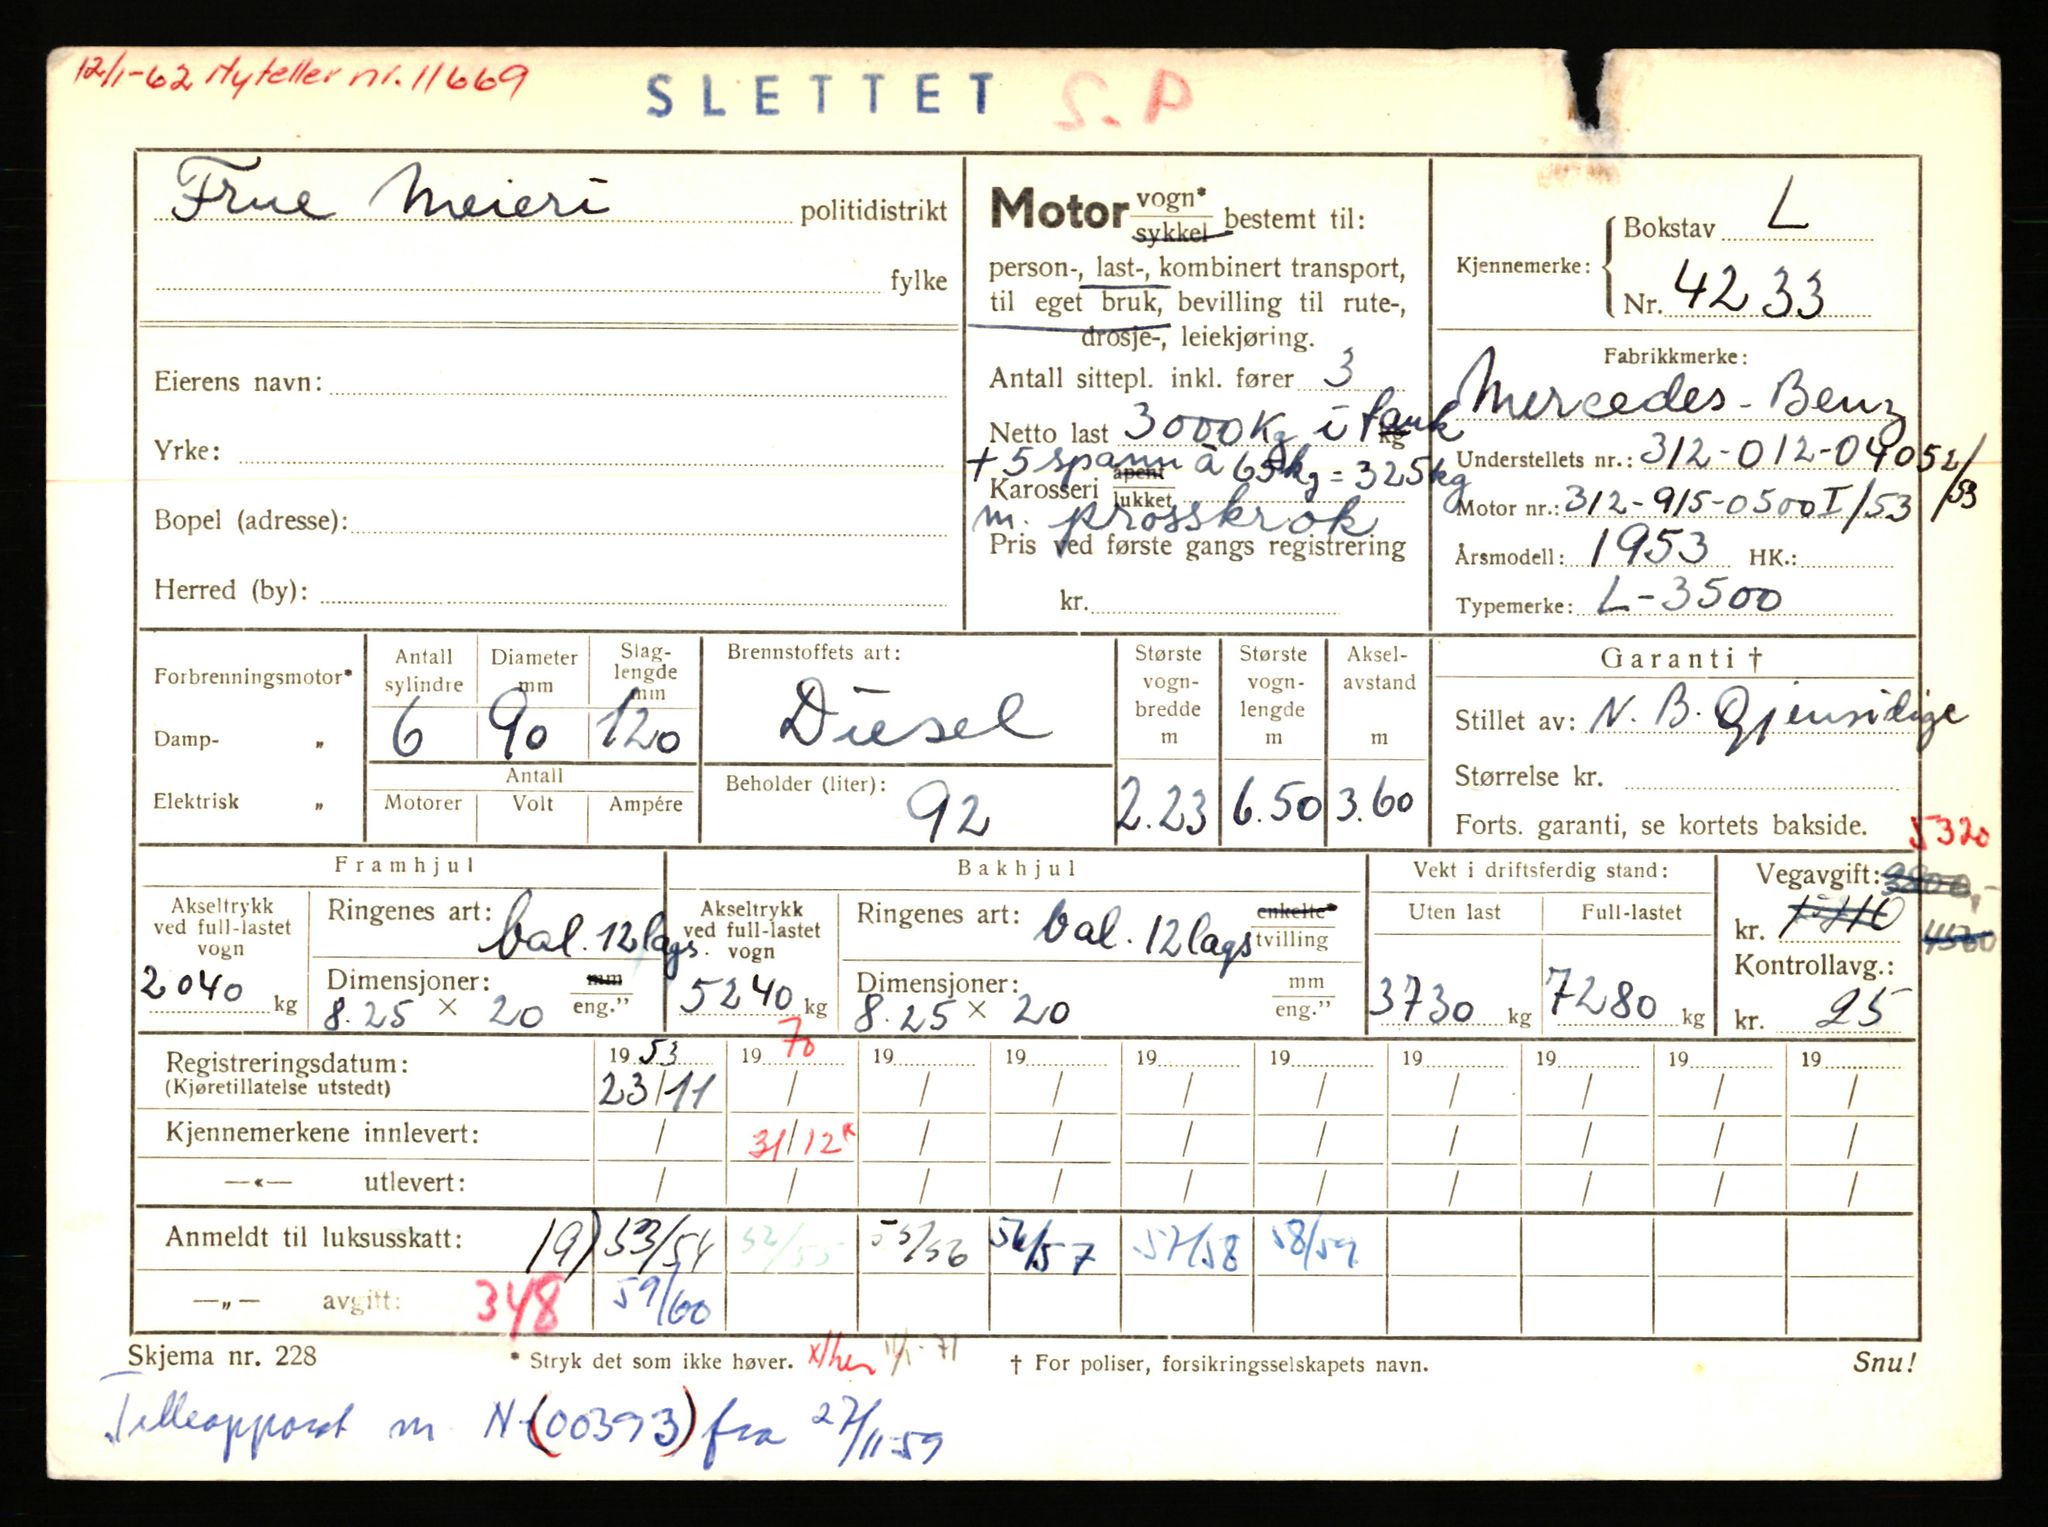 12/1-62 Ny teller nr. 11669
SLETTET S.P
Frue Meieri politidistrikt
fylke
Eierens navn:
Yrke:
Bopel (adresse):
Herred (by):
Motor vogn* sykkel bestemt til:
person-, last-, kombinert transport,
til eget bruk, bevilling til rute-,
drosje-, leiekjøring.
Antall sittepl. inkl. fører 3
Netto last 3000 kg i tank kg
+ 5 spann à 65 kg = 325 kg
Karosseri åpent lukket
m.
Pris ved første gangs registrering
kr.
Kjennemerke: Bokstav L
Nr. 4233
Fabrikkmerke:
Mercedes-Benz
Understellets nr.: 312-012-04052/53
Motor nr.: 312-915-0500I/53
Årsmodell: 1953 HK.:
Typemerke: L-3500
Forbrenningsmotor*
Damp- „
Elektrisk „
Antall sylindre 6
Diameter mm 90
Slaglengde mm 120
Antall
Motorer Volt Ampére
Brennstoffets art:
Diesel
Beholder (liter): 92
Største vogn-bredde m 2.23
Største vogn-lengde m 6.50
Aksel-avstand m 3.60
Garanti †
Stillet av: N.B. Gjensidige
Størrelse kr.
Forts. garanti, se kortets bakside.
Framhjul
Akseltrykk ved full-lastet vogn
2040 kg
Ringenes art: bal. 12 lags.
Dimensjoner: mm
8.25 × 20 eng.”
Bakhjul
Akseltrykk ved full-lastet vogn
5240 kg
Ringenes art: bal. 12 lags enkelte* tvilling
Dimensjoner: mm
8.25 × 20 eng.”
Vekt i driftsferdig stand:
Uten last Full-lastet
3730 kg 7280 kg
5320
Vegavgift:
kr. 4500
Kontrollavg.:
kr. 25
Registreringsdatum: 19 53 19 70 19 19 19 19 19 19 19 19
(Kjøretillatelse utstedt) 23/11 / / / / / / / / /
Kjennemerkene innlevert: / 31/12 x / / / / / / / /
—«— utlevert: / / / / / / / / / /
Anmeldt til luksusskatt: 19) 53/54 54/55 55/56 56/57 57/58 58/59
—„— avgift: 348 59/60
Skjema nr. 228 * Stryk det som ikke høver. 11/1-71 † For poliser, forsikringsselskapets navn. Snu!
Telleapparat m N-(00393) fra 27/11-59